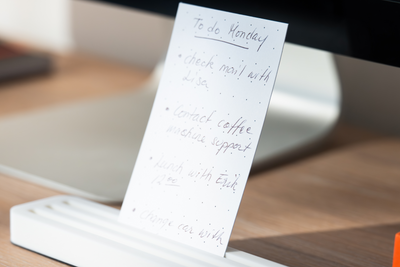 To do Monday
• check mail with
Lisa
• contact coffee
machine support
• lunch with Erik
• change car with